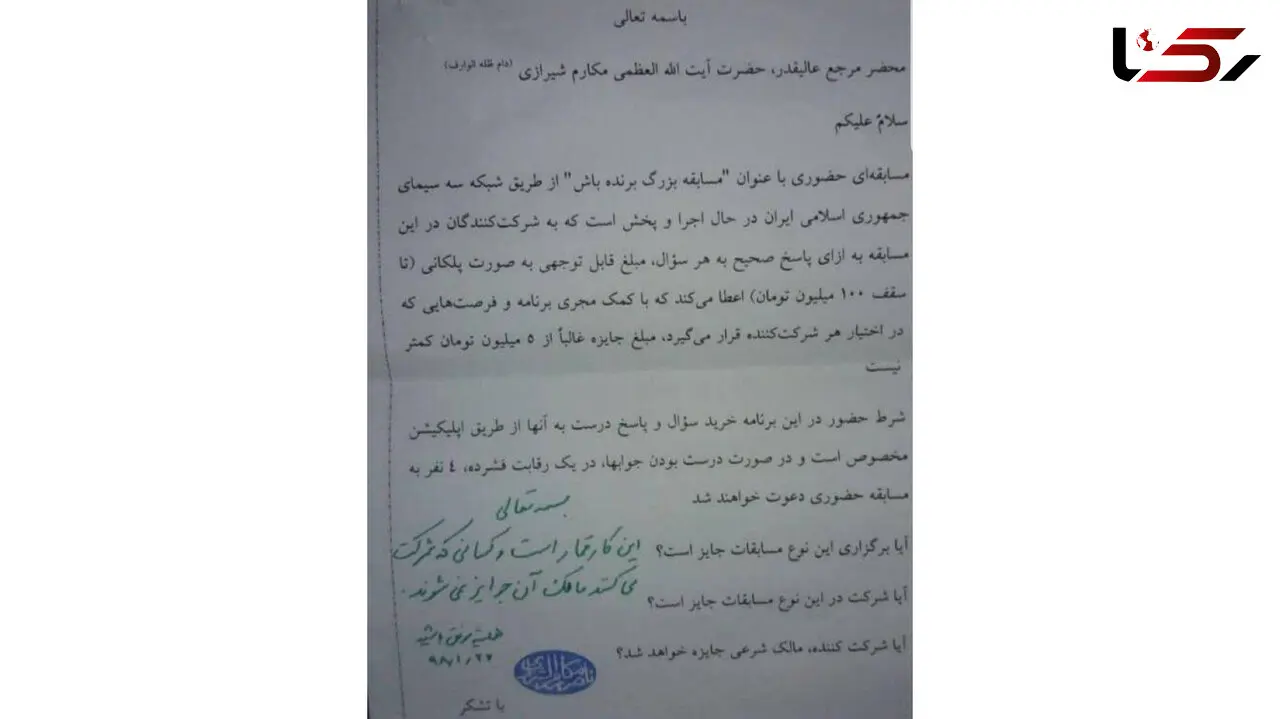 باسمه تعالی
رکنا
محضر مرجع عالیقدر، حضرت آیت الله العظمی مکارم شیرازی (دام ظله الوارف)
سلامٌ علیکم
مسابقه‌ای حضوری با عنوان "مسابقه بزرگ برنده باش" از طریق شبکه سه سیمای
جمهوری اسلامی ایران در حال اجرا و پخش است که به شرکت‌کنندگان در این
مسابقه به ازای پاسخ صحیح به هر سؤال، مبلغ قابل توجهی به صورت پلکانی (تا
سقف ۱۰۰ میلیون تومان) اعطا می‌کند که با کمک مجری برنامه و فرصت‌هایی که
در اختیار هر شرکت‌کننده قرار می‌گیرد، مبلغ جایزه غالباً از ۵ میلیون تومان کمتر
نیست
شرط حضور در این برنامه خرید سؤال و پاسخ درست به آنها از طریق اپلیکیشن
مخصوص است و در صورت درست بودن جوابها، در یک رقابت فشرده، ٤ نفر به
مسابقه حضوری دعوت خواهند شد
بسمه تعالی
آیا برگزاری این نوع مسابقات جایز است؟
این کار قمار است و کسانی که شرکت
می کنند مالک آن جوایز نمی شوند.
آیا شرکت در این نوع مسابقات جایز است؟
همیشه موفق باشید
۹۸/۱/۲۲
آیا شرکت کننده، مالک شرعی جایزه خواهد شد؟
ناصر مکارم الشیرازی
با تشکر